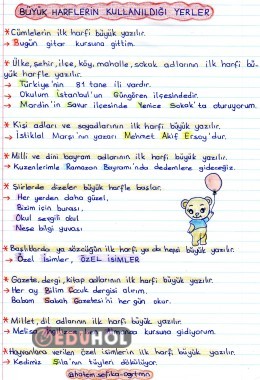 BÜYÜK HARFLERİN KULLANILDIĞI YERLER
* Cümlelerin ilk harfi büyük yazılır.
→ Bugün gitar kursuna gittim.
* Ülke, şehir, ilçe, köy, mahalle, sokak adlarının ilk harfi bü-
yük harfle yazılır.
→ Türkiye'nin 81 tane ili vardır.
→ Okulum İstanbul'un Güngören ilçesindedir.
→ Mardin'in Savur ilçesinde Yenice Sokak'ta oturuyorum.
* Kişi adları ve soyadlarının ilk harfi büyük yazılır.
→ İstiklal Marşı'nın yazarı Mehmet Akif Ersoy'dur.
* Milli ve dini bayram adlarının ilk harfi büyük yazılır.
→ Kuzenlerimle Ramazan Bayramı'nda dedemlere gideceğiz.
* Şiirlerde dizeler büyük harfle başlar.
→ Her yerden daha güzel,
Bizim için burası.
Okul sevgili okul
Neşe bilgi yuvası
* Başlıklarda ya sözcüğün ilk harfi ya da hepsi büyük yazılır.
→ Özel İsimler, ÖZEL İSİMLER
* Gazete, dergi, kitap adlarının ilk harfi büyük yazılır.
→ Her ay Bilim Çocuk dergisi alırım.
Babam Sabah Gazetesi'ni her gün okur.
* Millet, dil adlarının ilk harfi büyük yazılır.
→ Melisa kursuna gidiyorum.
EDUHOL
* Hayvanlara verilen özel isimlerin ilk harfi büyük yazılır.
→ Kedimiz Sıla'nın tüyleri dökülüyor.